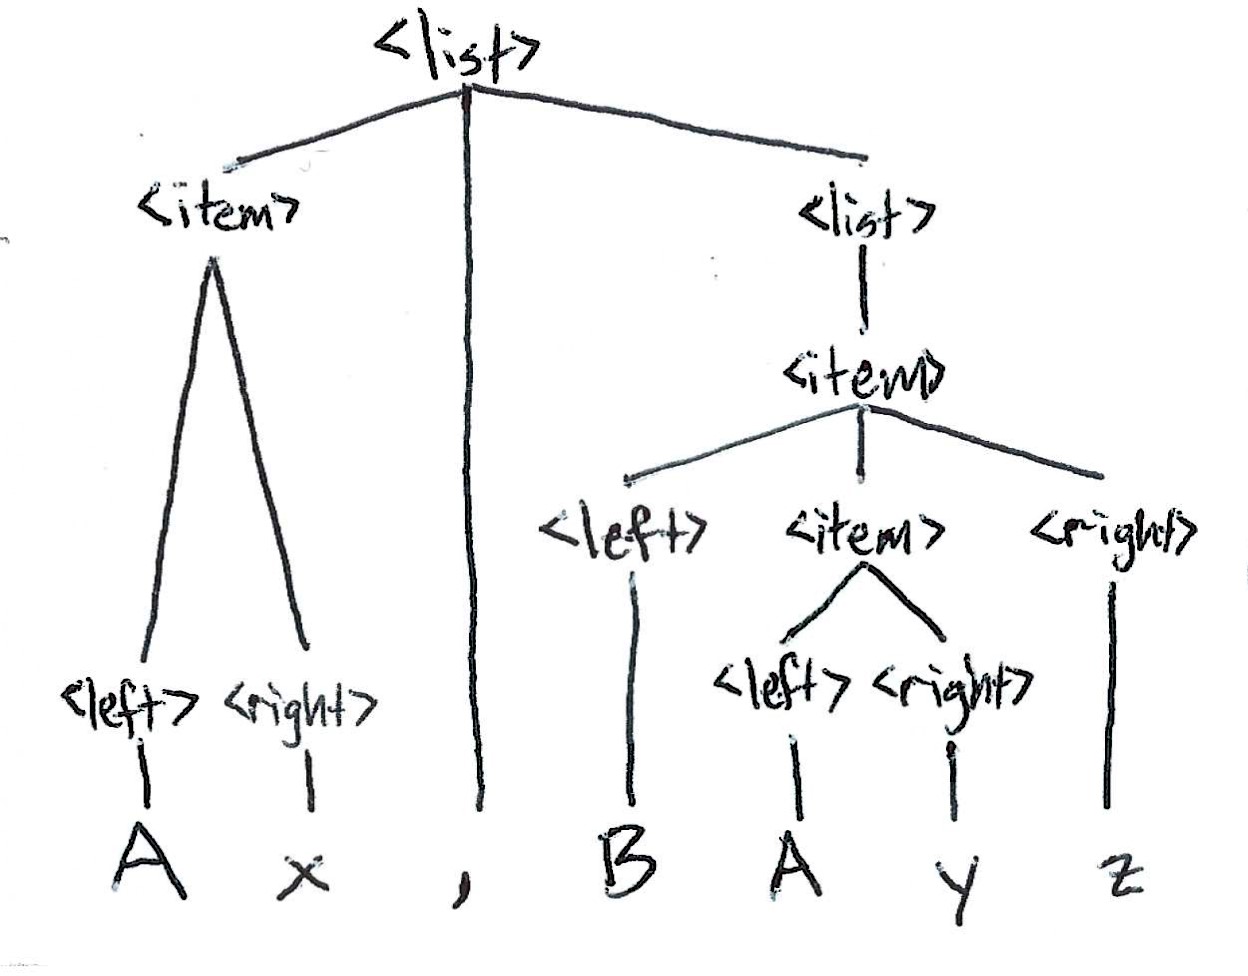 <list>
<item> <list>
<item>
<left> <item> <right>
<left> <right> <left> <right>
A x , B A y z